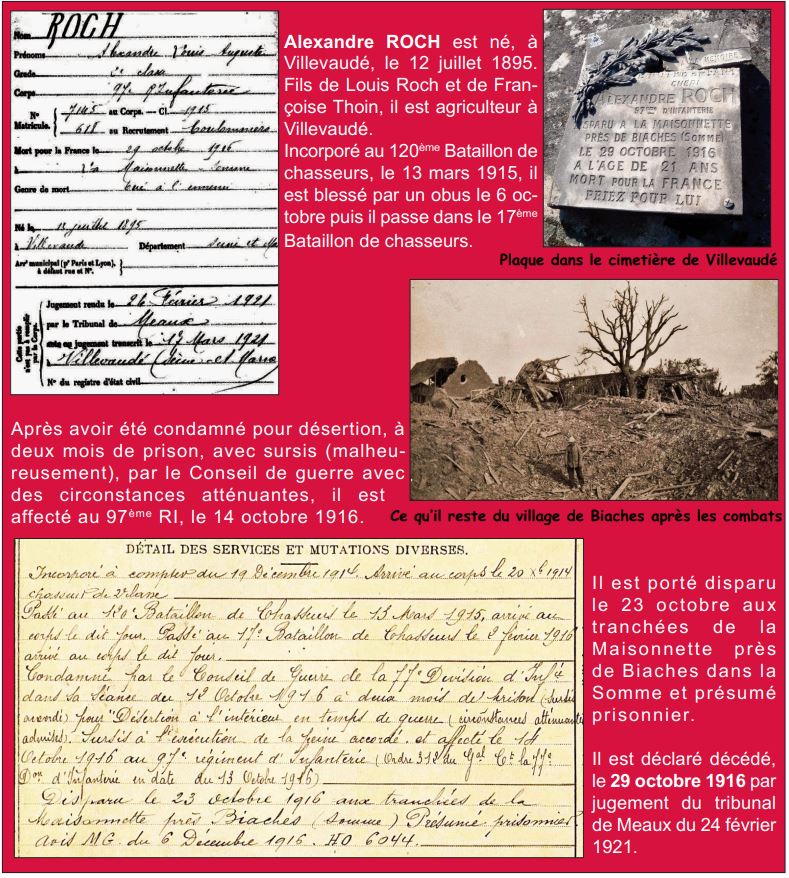 Nom ROCH
Prénoms Alexandre Louis Auguste
Grade 2e classe
Corps 97e d'Infanterie
N° Matricule. 7145 au Corps. — Cl. 1915
618 au Recrutement Coulommiers
Mort pour la France le 29 octobre 1916
à La Maisonnette Somme
Genre de mort Tué à l'ennemi
Né le 12 juillet 1895
à Villevaudé Département Seine et Ma
Arrt municipal (pr Paris et Lyon), à défaut rue et N°.
Cette partie n'est pas à remplir par le Corps.
Jugement rendu le 26 Février 1921
par le Tribunal de Meaux
acte ou jugement transcrit le 17 Mars 1921
à Villevaudé (Seine et Marne
N° du registre d'état civil
Alexandre ROCH est né, à
Villevaudé, le 12 juillet 1895.
Fils de Louis Roch et de Fran-
çoise Thoin, il est agriculteur à
Villevaudé.
Incorporé au 120ème Bataillon de
chasseurs, le 13 mars 1915, il
est blessé par un obus le 6 oc-
tobre puis il passe dans le 17ème
Bataillon de chasseurs.
MÉMOIRE
NOTRE ENFANT
CHÉRI
ALEXANDRE ROCH
97ème D'INFANTERIE
DISPARU A LA MAISONNETTE
PRÈS DE BIACHES (SOMME)
LE 29 OCTOBRE 1916
A L'AGE DE 21 ANS
MORT POUR LA FRANCE
PRIEZ POUR LUI
Plaque dans le cimetière de Villevaudé
Après avoir été condamné pour désertion, à
deux mois de prison, avec sursis (malheu-
reusement), par le Conseil de guerre avec
des circonstances atténuantes, il est
affecté au 97ème RI, le 14 octobre 1916.
Ce qu'il reste du village de Biaches après les combats
DÉTAIL DES SERVICES ET MUTATIONS DIVERSES.
Incorporé à compter du 19 Décembre 1914. Arrivé au corps le 20 Xbre 1914
chasseur de 2e classe
Passé au 120e Bataillon de Chasseurs le 13 Mars 1915, arrivé au
corps le dit jour. Passé au 17e Bataillon de Chasseurs le 2 février 1916
arrivé au corps le dit jour.
Condamné par le Conseil de Guerre de la 77e Division d'Inf.ie
dans sa Séance du 12 Octobre 1916 à deux mois de prison (sursis
accordé) pour "Désertion à l'intérieur en temps de guerre (circonstances atténuantes
admises). Sursis à l'exécution de la peine accordé. et affecté le 14
Octobre 1916 au 97e régiment d'Infanterie (Ordre 312 du Gal Ct la 77e
Don d'Infanterie en date du 13 Octobre 1916)
Disparu le 23 octobre 1916 aux tranchées de la
Maisonnette près Biaches (Somme) Présumé prisonnier.
avis MG. du 6 Décembre 1916. HO 6044.
Il est porté disparu
le 23 octobre aux
tranchées de la
Maisonnette près
de Biaches dans la
Somme et présumé
prisonnier.
Il est déclaré décédé,
le 29 octobre 1916 par
jugement du tribunal
de Meaux du 24 février
1921.